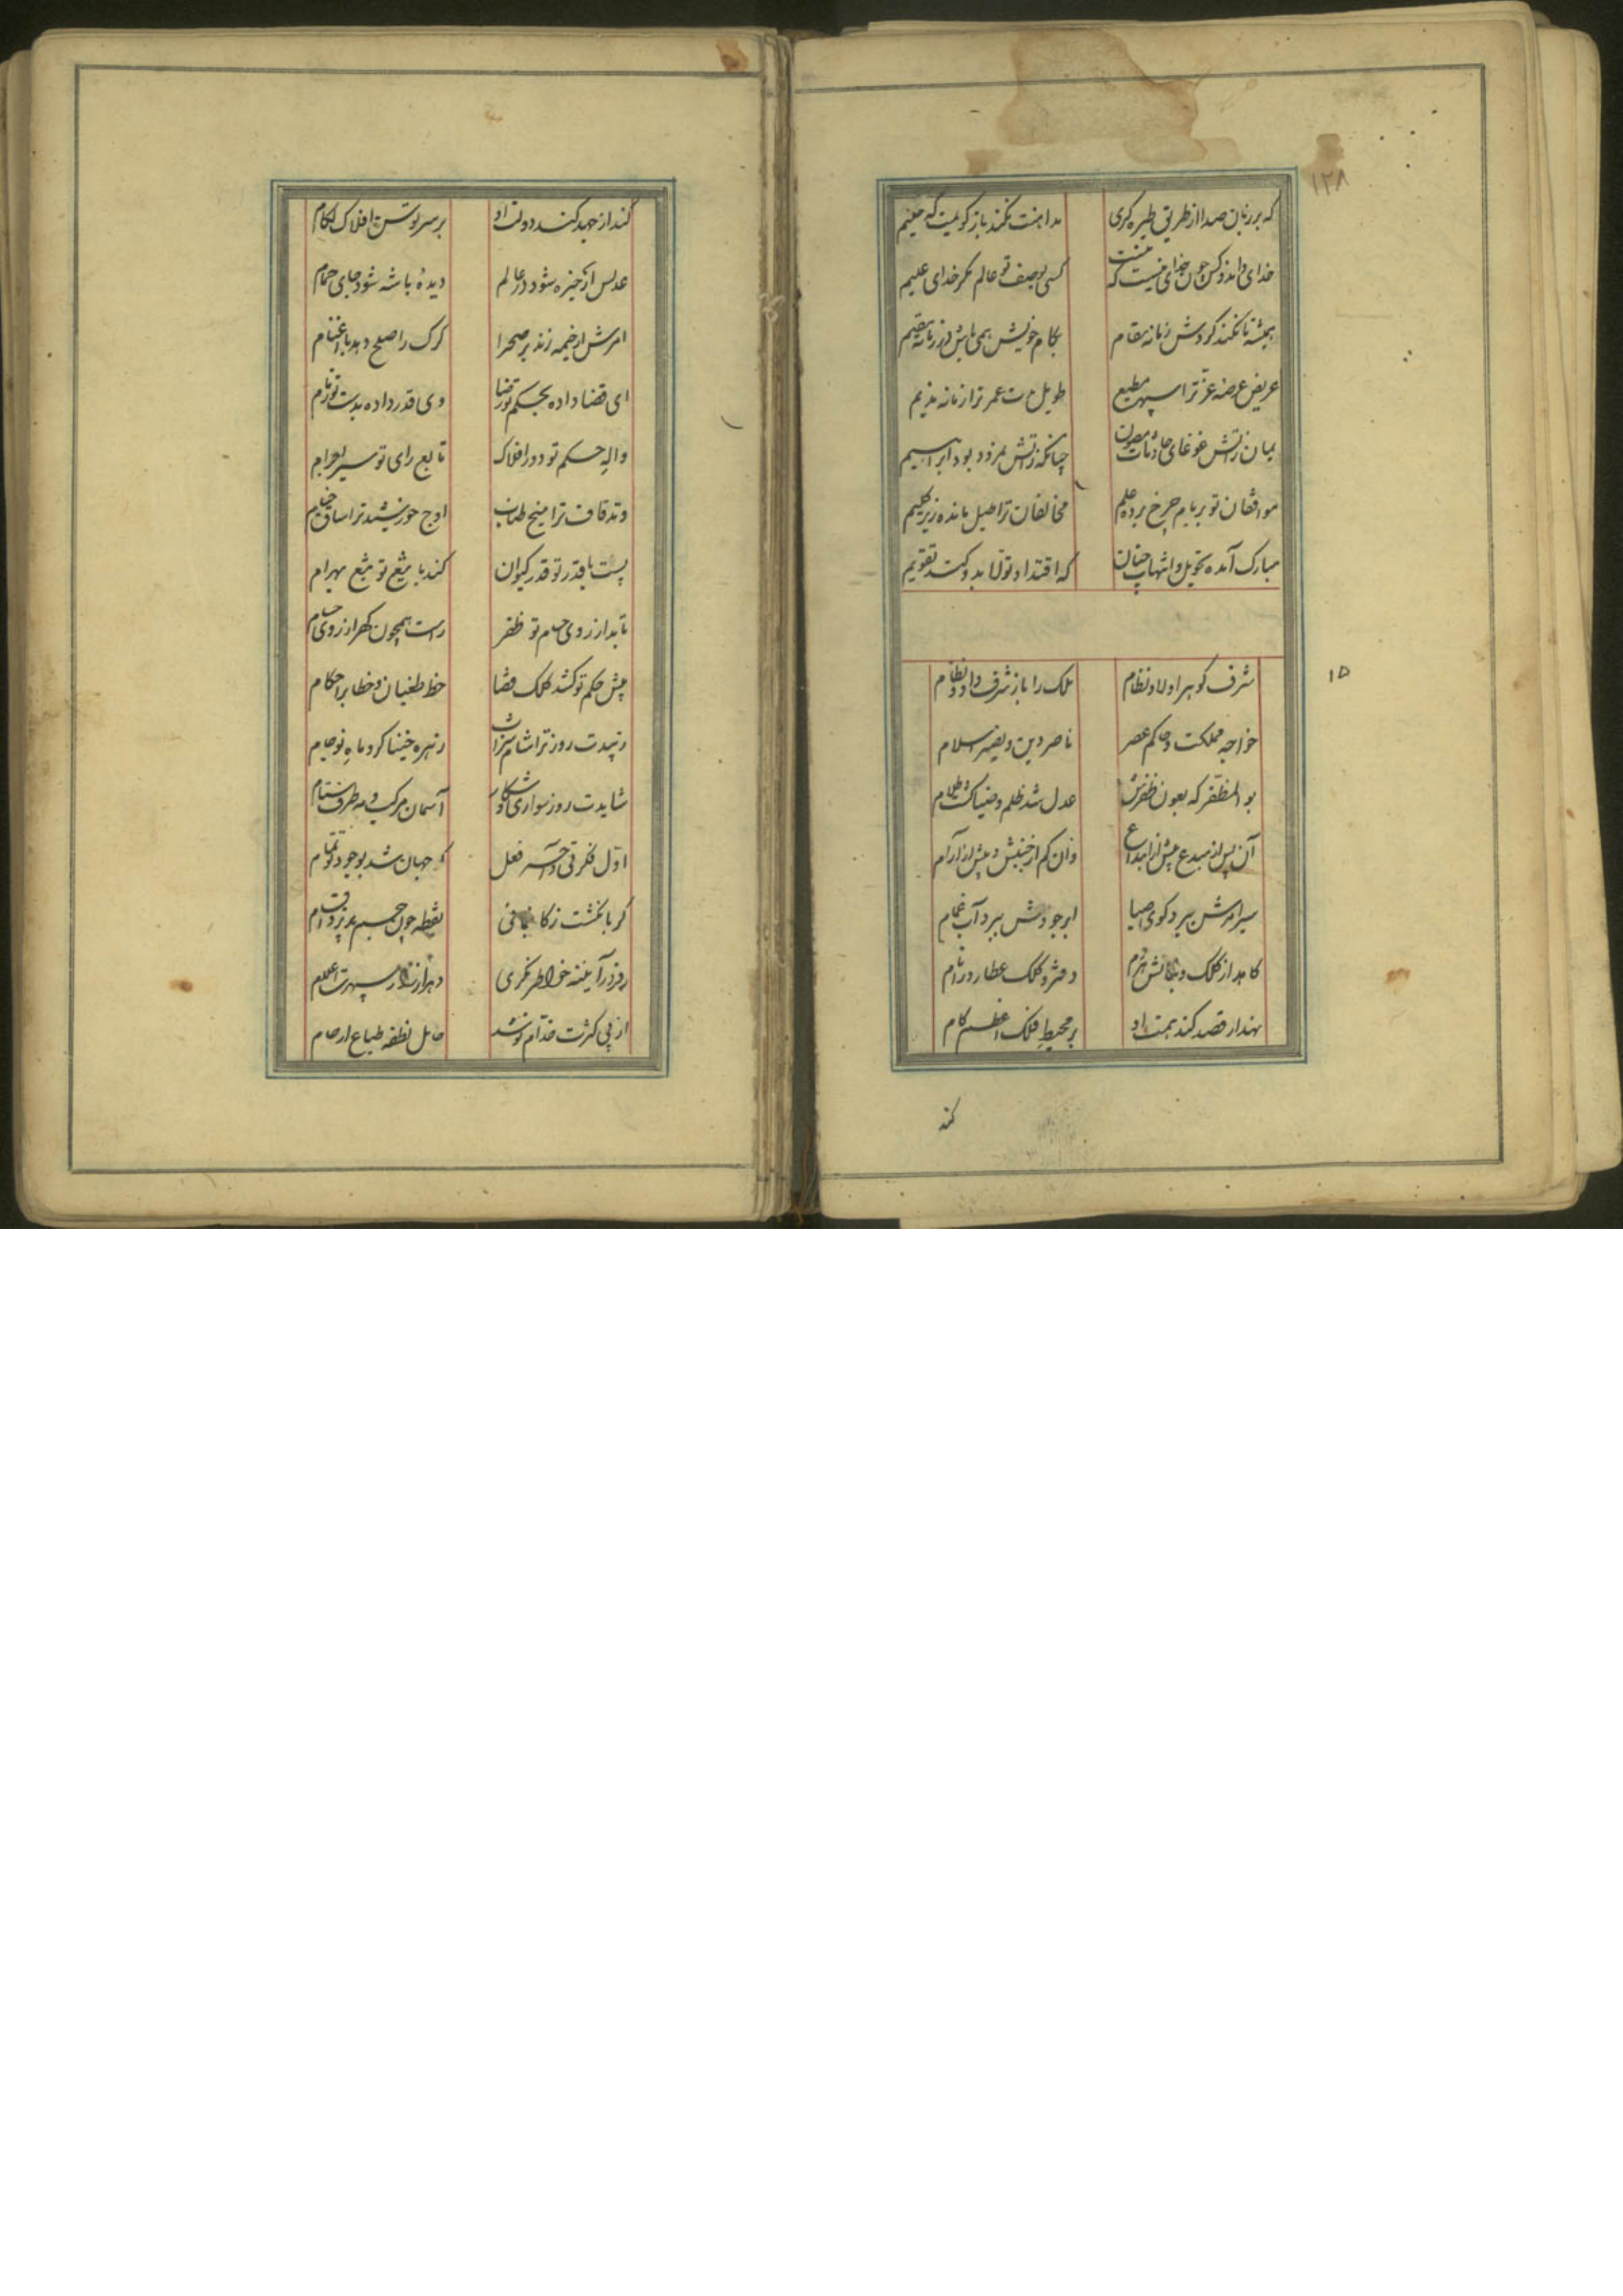 ۱۲۸
که بر زبان صدا از طریق طیره گری
مداهنت نکند باز گویمت که مقیم
خدای داند و کس چون خدای نیست که نیست
کسی بوصف تو عالم مگر خدای علیم
همیشه تا نکند گردش زمانه مقام
بکام خویش همی باش در زمانه مقیم
عریض عرصه عز ترا سپهر مطیع
طویل مدت عمر ترا زمانه ندیم
میان آتش غوغای حادثات مصون
چنانکه در آتش نمرود بود ابراهیم
موافقان تو بر بام چرخ برده علم
مخالفان ترا طبل مانده زیر گلیم
مبارک آمده تحویل و انتهات چنان
که اقتدا و تولا بدو کند تقویم
شرف گوهر اولاد نظام
ملک را باز شرف داد و نظام
۱۵
خواجه مملکت و حاکم عصر
ناصر دین و نصیر اسلام
بوالمظفر که بعون ظفرش
عدل شد ظلم و ضیا گشت ظلام
آن پس از مبدع و پیش از ابداع
وان کم از جنبش و بیش از آرام
سیر امرش ببرد گوی صبا
ابر جودش ببرد آب غمام
کاهد از کلک و بنانش هردم
دفتر و کلک عطارد را نام
نهد ار قصد کند همت او
بر محیط فلک اعظم گام
کند
کند ار جهد کند دولت او
بر سر توسن افلاک لگام
عدلش ار خیره شود در عالم
دیده باشه شود جای حمام
امرش ار خیمه زند بر صحرا
گرگ را صلح دهد با اغنام
ای قضا داده بحکم تو رضا
وی قدر داده بدست تو زمام
واله حکم تو دور افلاک
تابع رای تو سیر اجرام
وتد قاف ترا میخ طناب
اوج خورشید ترا ساق خیام
پست با قدر تو قدر کیوان
کند با تیغ تو تیغ بهرام
تابد از روی حسام تو ظفر
راست همچون گهر از روی حسام
پیش حکم تو کشد کلک قضا
خط طغیان و خطا بر احکام
زیبدت روز تراشام شراب
زهره خنیاگر و ماه نو جام
شایدت روز سواری و شکار
آسمان مرکب و مه طرف ستام
اول فکرتی و آخر فعل
که جهان شد بوجود تو تمام
گر بانگشت ذکا بنمائی
نقطه چون جسم پذیرد اقسام
ور در آیینه خاطر نگری
از پی کثرت خدام تو شد
حامل نطفه طباع ارحام